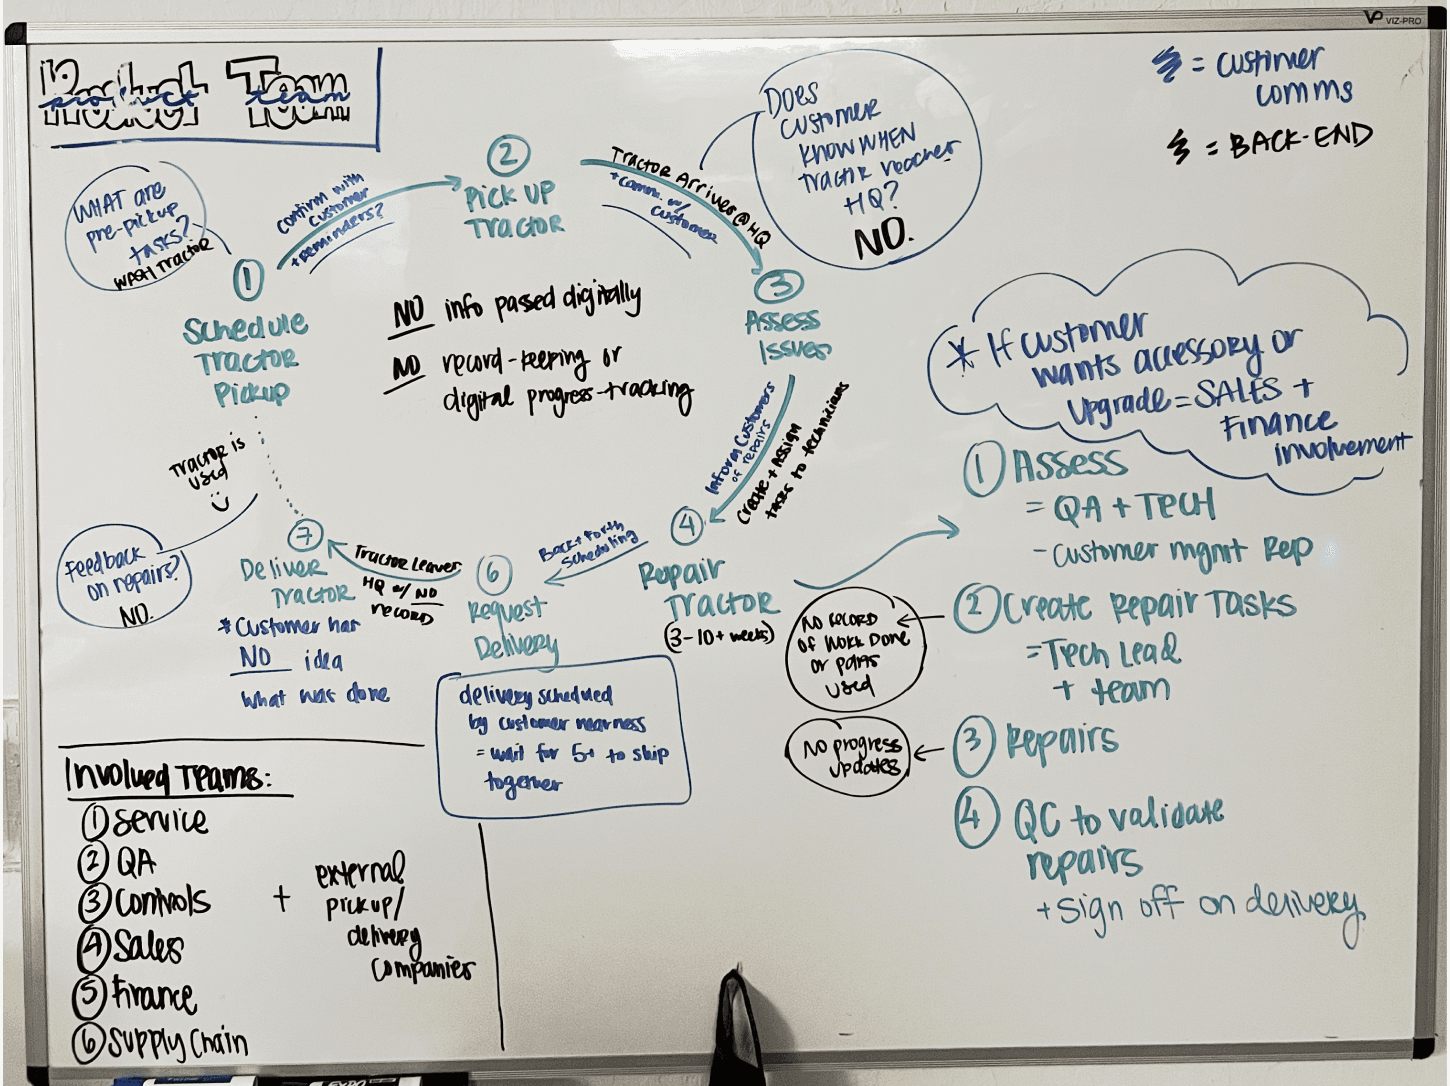 VP VIZ-PRO
Product Team
product team
= customer
comms
= BACK-END
WHAT ARE
pre-pickup
tasks?
WASH TRACTOR
①
Schedule
Tractor
Pickup
confirm with
customer
+ reminders?
②
Pick up
Tractor
Tractor Arrives @ HQ
+ comm. w/
customer
Does
customer
know WHEN
tractor reaches
HQ?
NO.
③
Assess
Issues
NO info passed digitally
NO record-keeping or
digital progress-tracking
Inform customers
of repairs
Create + Assign
tasks to technicians
④
Repair
Tractor
(3-10+ weeks)
Back + forth
scheduling
⑥
Request
Delivery
delivery scheduled
by customer nearness
= wait for 5+ to ship
together
Tractor Leaves
HQ w/ NO
record
⑦
Deliver
Tractor
* Customer has
NO idea
what was done
Tractor is
used
Feedback
on repairs?
NO.
* If customer
wants accessory or
upgrade = SALES +
Finance
involvement
① Assess
= QA + TECH
- customer mgmt Rep
② Create Repair Tasks
= Tech Lead
+ team
No record
of work done
or parts
used
③ Repairs
No progress
updates
④ QC to validate
repairs
+ sign off on delivery
Involved Teams:
① Service
② QA
③ Controls
④ Sales
⑤ Finance
⑥ Supply Chain
+ external
pickup/
delivery
companies